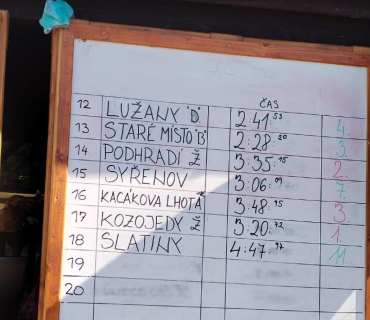 ČAS
12 LUŽANY "D" 2:41 53 4.
13 STARÉ MÍSTO "B" 2:28 20 3.
14 PODHRADÍ Ž 3:35 15 2.
15 SYŘENOV 3:06 09 7.
16 KACÁKOVA LHOTA 3:48 95 3.
17 KOZOJEDY Ž 3:20 72 1.
18 SLATINY 4:47 97 11.
19
20